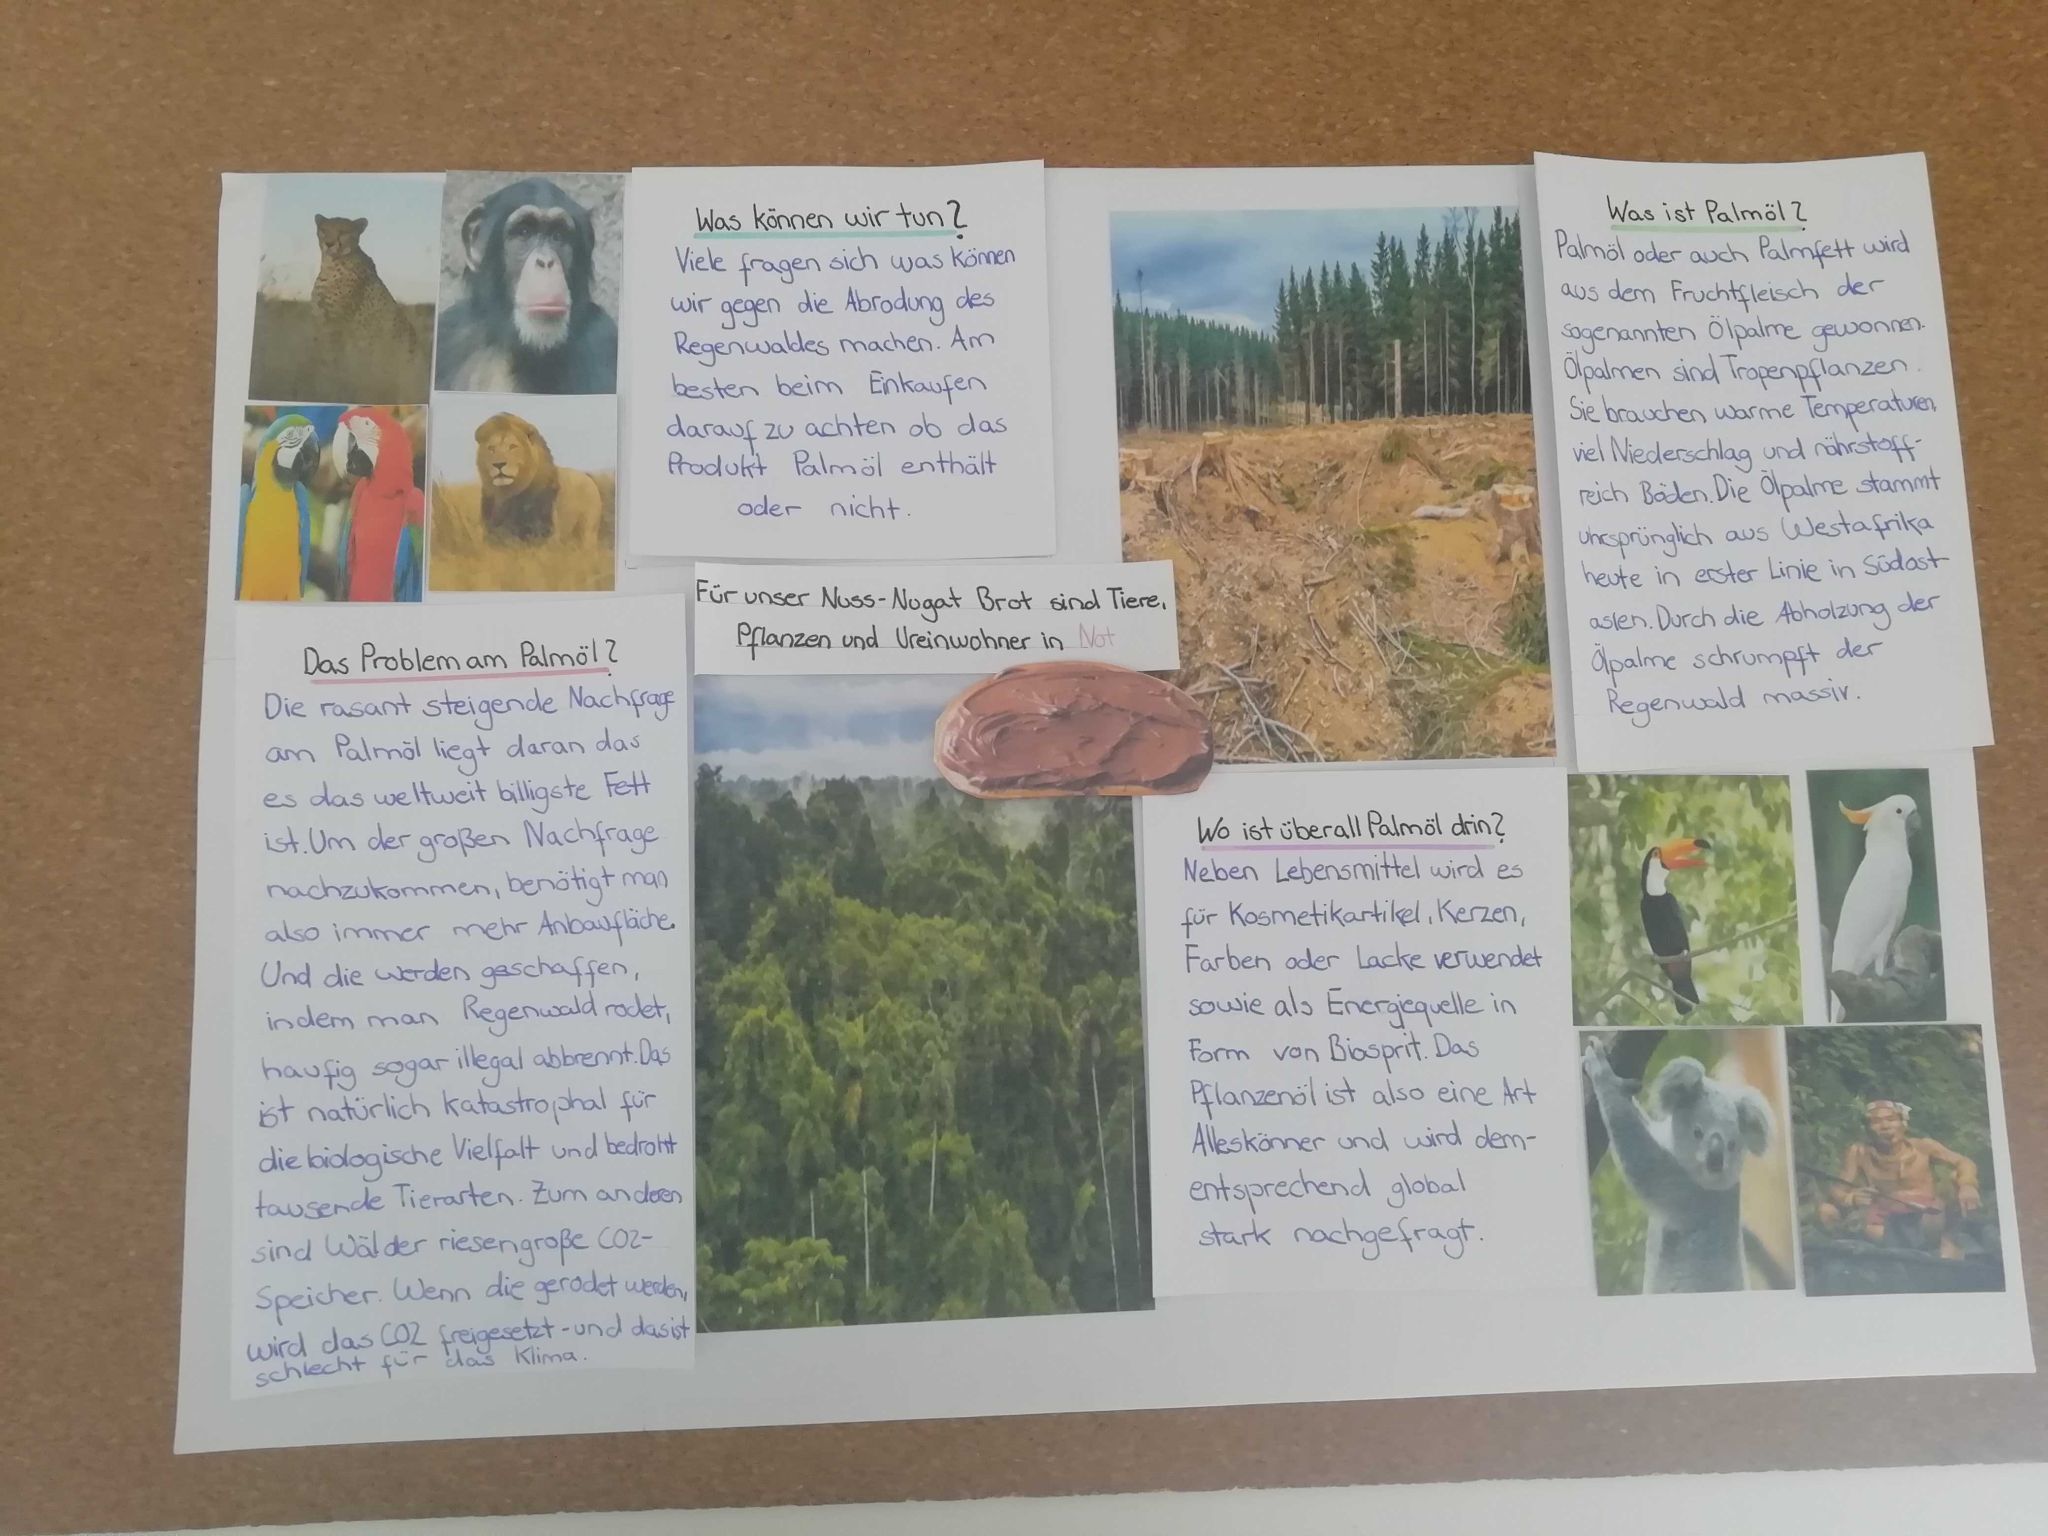 Was können wir tun?
Viele fragen sich was können
wir gegen die Abrodung des
Regenwaldes machen. Am
besten beim Einkaufen
darauf zu achten ob das
Produkt Palmöl enthält
oder nicht.
Für unser Nuss-Nugat Brot sind Tiere,
Pflanzen und Ureinwohner in Not
Was ist Palmöl?
Palmöl oder auch Palmfett wird
aus dem Fruchtfleisch der
sogenannten Ölpalme gewonnen.
Ölpalmen sind Tropenpflanzen.
Sie brauchen warme Temperaturen,
viel Niederschlag und nährstoff-
reich Böden. Die Ölpalme stammt
uhrsprünglich aus Westafrika
heute in erster Linie in Südost-
asien. Durch die Abholzung der
Ölpalme schrumpft der
Regenwald massiv.
Das Problem am Palmöl?
Die rasant steigende Nachfrage
am Palmöl liegt daran das
es das weltweit billigste Fett
ist. Um der großen Nachfrage
nachzukommen, benötigt man
also immer mehr Anbaufläche.
Und die werden geschaffen,
indem man Regenwald rodet,
haufig sogar illegal abbrennt. Das
ist natürlich katastrophal für
die biologische Vielfalt und bedroht
tausende Tierarten. Zum anderen
sind Wälder riesengroße CO2-
Speicher. Wenn die gerodet werden,
wird das CO2 freigesetzt - und das ist
schlecht für das Klima.
Wo ist überall Palmöl drin?
Neben Lebensmittel wird es
für Kosmetikartikel, Kerzen,
Farben oder Lacke verwendet
sowie als Energiequelle in
Form von Biosprit. Das
Pflanzenöl ist also eine Art
Alleskönner und wird dem-
entsprechend global
stark nachgefragt.